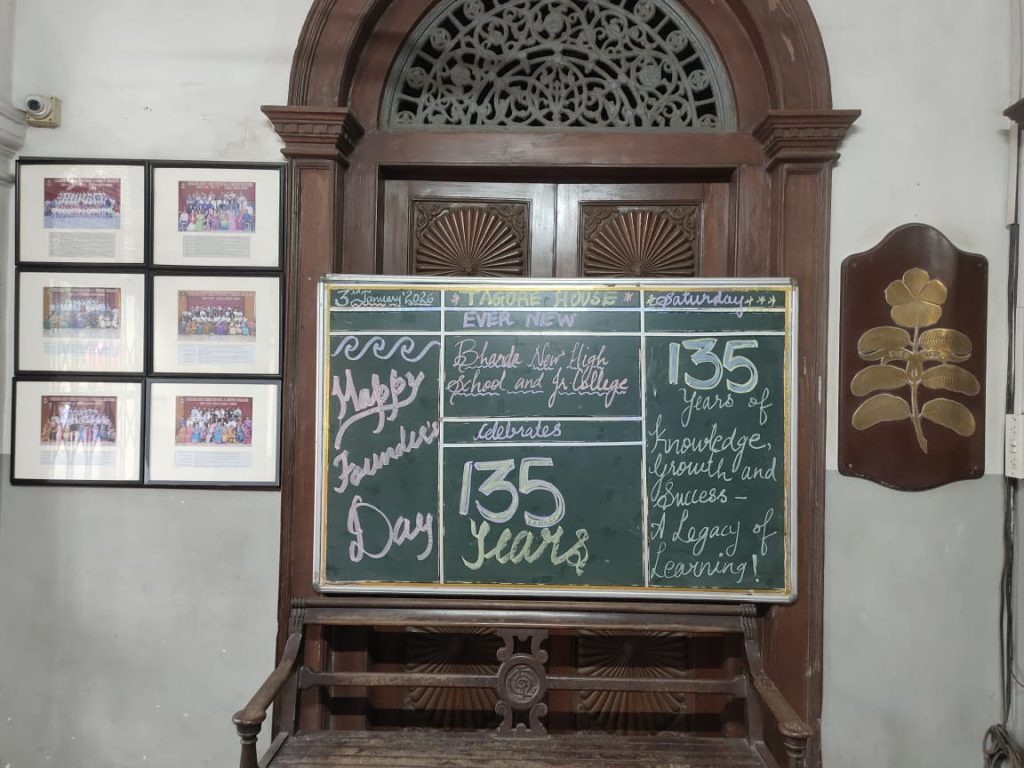 3rd January '2026
* TAGORE HOUSE *
Saturday
EVER NEW
Happy
Founder's
Day
Bharda New High
School and Jr. College
Celebrates
135
Years
135
Years of
Knowledge,
Growth and
Success –
A Legacy of
Learning!